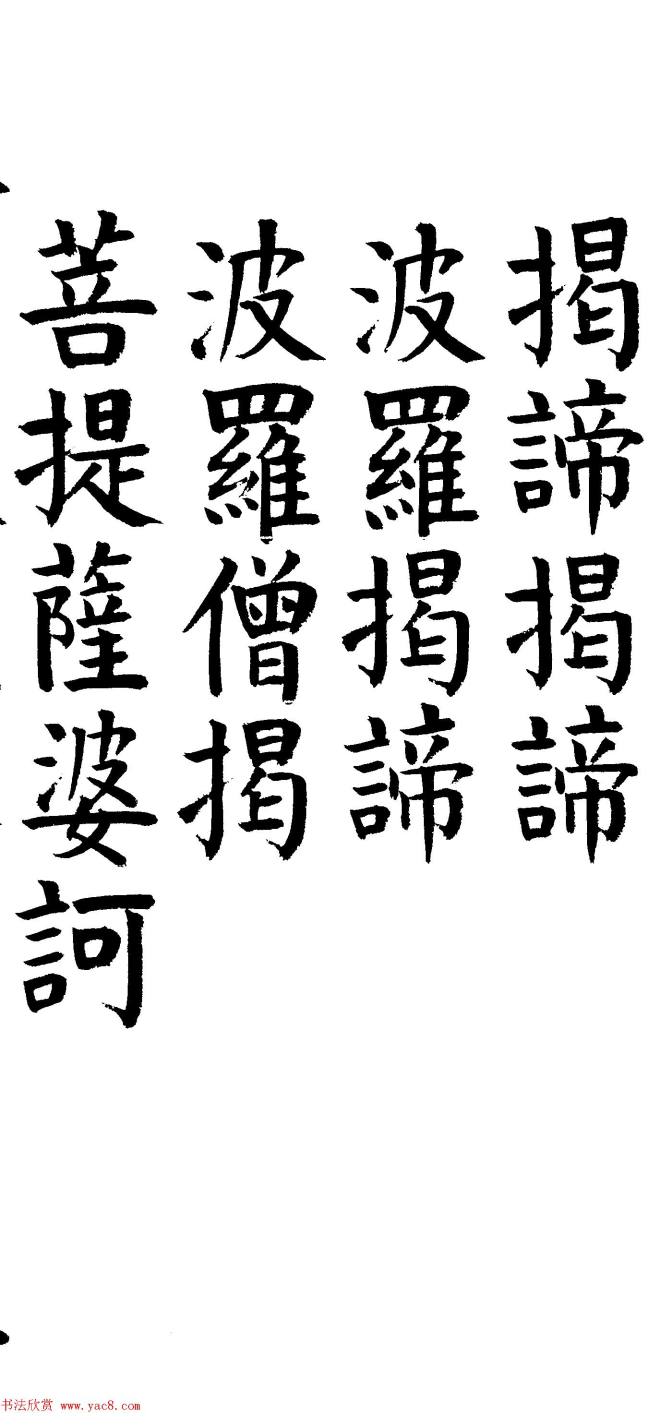 揭諦揭諦
波羅揭諦
波羅僧揭
菩提薩婆訶
书法欣赏 www.yac8.com